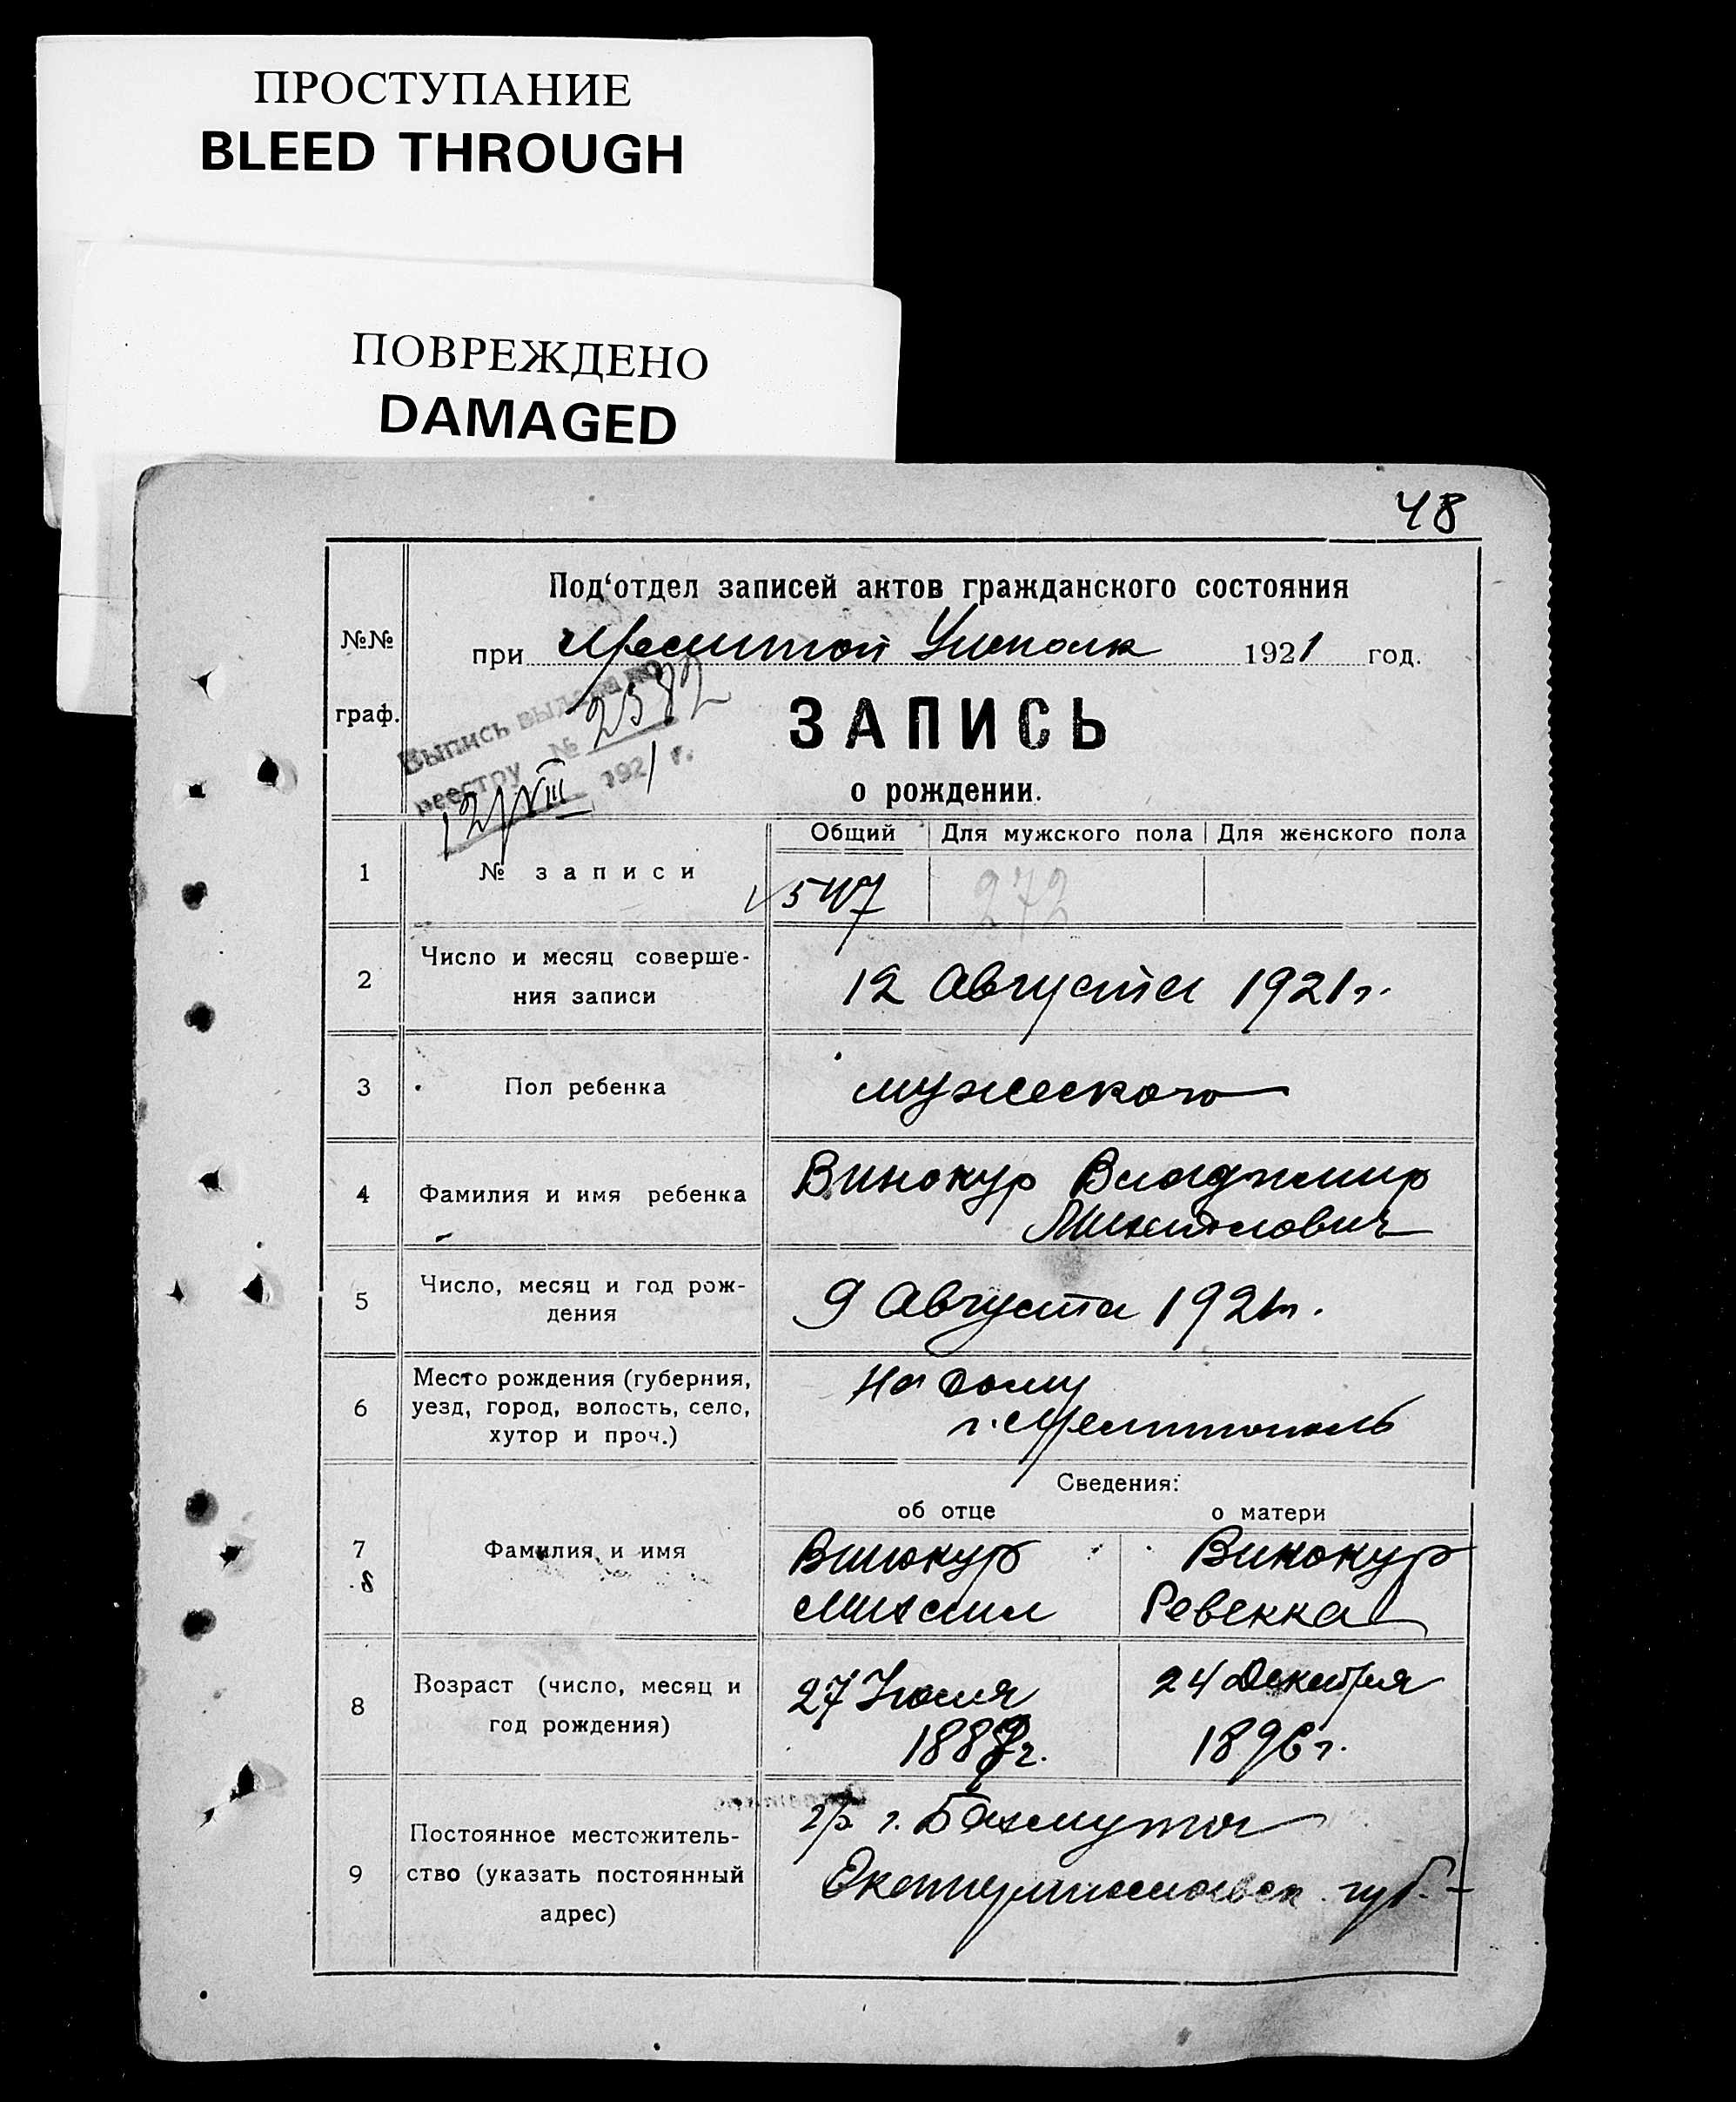 ПРОСТУПАНИЕ
BLEED THROUGH
ПОВРЕЖДЕНО
DAMAGED
48
Под'отдел записей актов гражданского состояния
№№
при Мелитоп Уисполк 1921 год.
граф.
Выпись выдана по
реестру № 2582
12/VIII 1921 г.
ЗАПИСЬ
о рождении.
Общий Для мужского пола Для женского пола
1 № записи 547 272
2 Число и месяц соверше-
ния записи
12 Августа 1921 г.
3 Пол ребенка мужеского
4 Фамилия и имя ребенка
Винокур Владимир
Михайлович
5 Число, месяц и год рож-
дения
9 Августа 1921 г.
6 Место рождения (губерния,
уезд, город, волость, село,
хутор и проч.)
На дому
г. Мелитополь
Сведения:
об отце о матери
7 Фамилия и имя
8
Винокур
Михаил
Винокур
Ревекка
8 Возраст (число, месяц и
год рождения)
27 Июля
188 г.
24 Декабря
1896 г.
9 Постоянное местожитель-
ство (указать постоянный
адрес)
гр. г. Бахмута
Екатеринославск. губ.